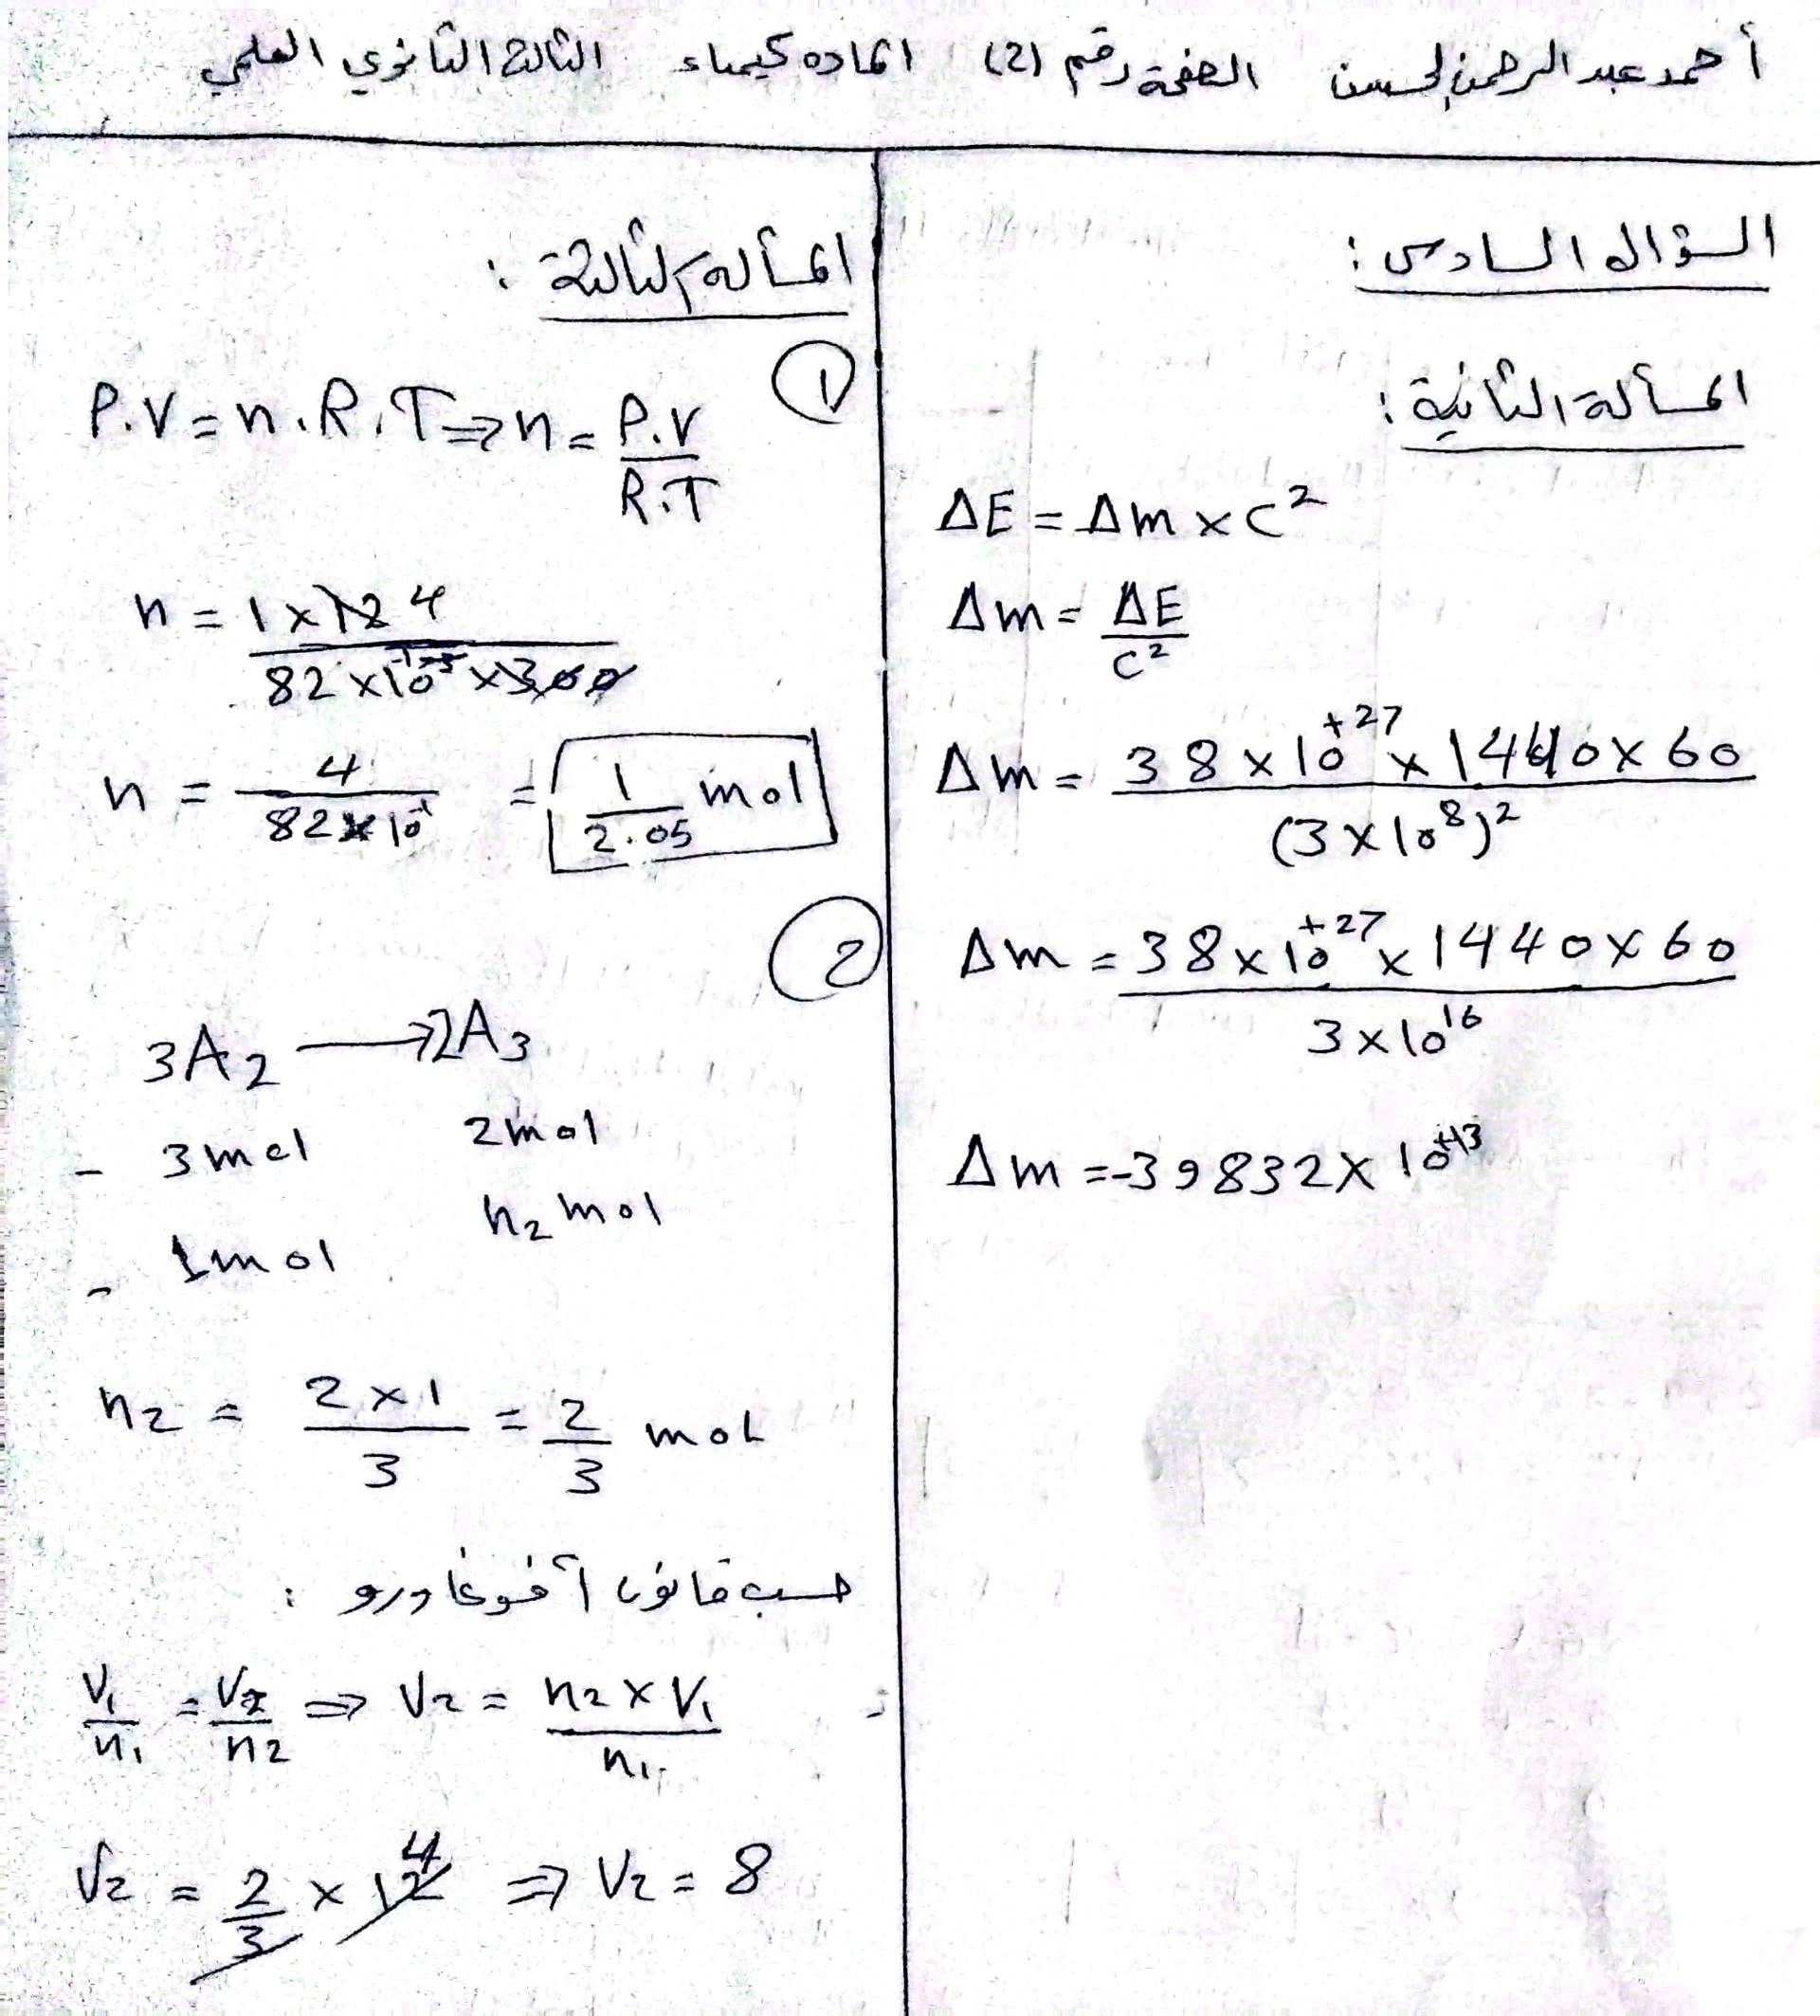 أحمد عبد الرحمن الحسن الصفحة رقم (2) المادة كيمياء الثالث الثانوي العلمي
السؤال السادس:
المسألة الثانية:
ΔE = Δm × C²
Δm = ΔE / C²
Δm = 38 × 10⁺²⁷ × 1440 × 60 / (3 × 10⁸)²
Δm = 38 × 10⁺²⁷ × 1440 × 60 / 3 × 10¹⁶
Δm = -39832 × 10⁺¹³
المسألة الثالثة:
1
P.V = n.R.T ⇒ n = P.V / R.T
n = 1 × 12 4 / 82 × 10⁻³ × 300
n = 4 / 82 × 10⁻¹ = 1 / 2.05 mol
2
3A₂ → 2A₃
3mol 2mol
1mol n₂ mol
n₂ = 2 × 1 / 3 = 2 / 3 mol
حسب قانون أفوغادرو :
V₁ / n₁ = V₂ / n₂ ⇒ V₂ = n₂ × V₁ / n₁
V₂ = 2 / 3 × 12 4 ⇒ V₂ = 8